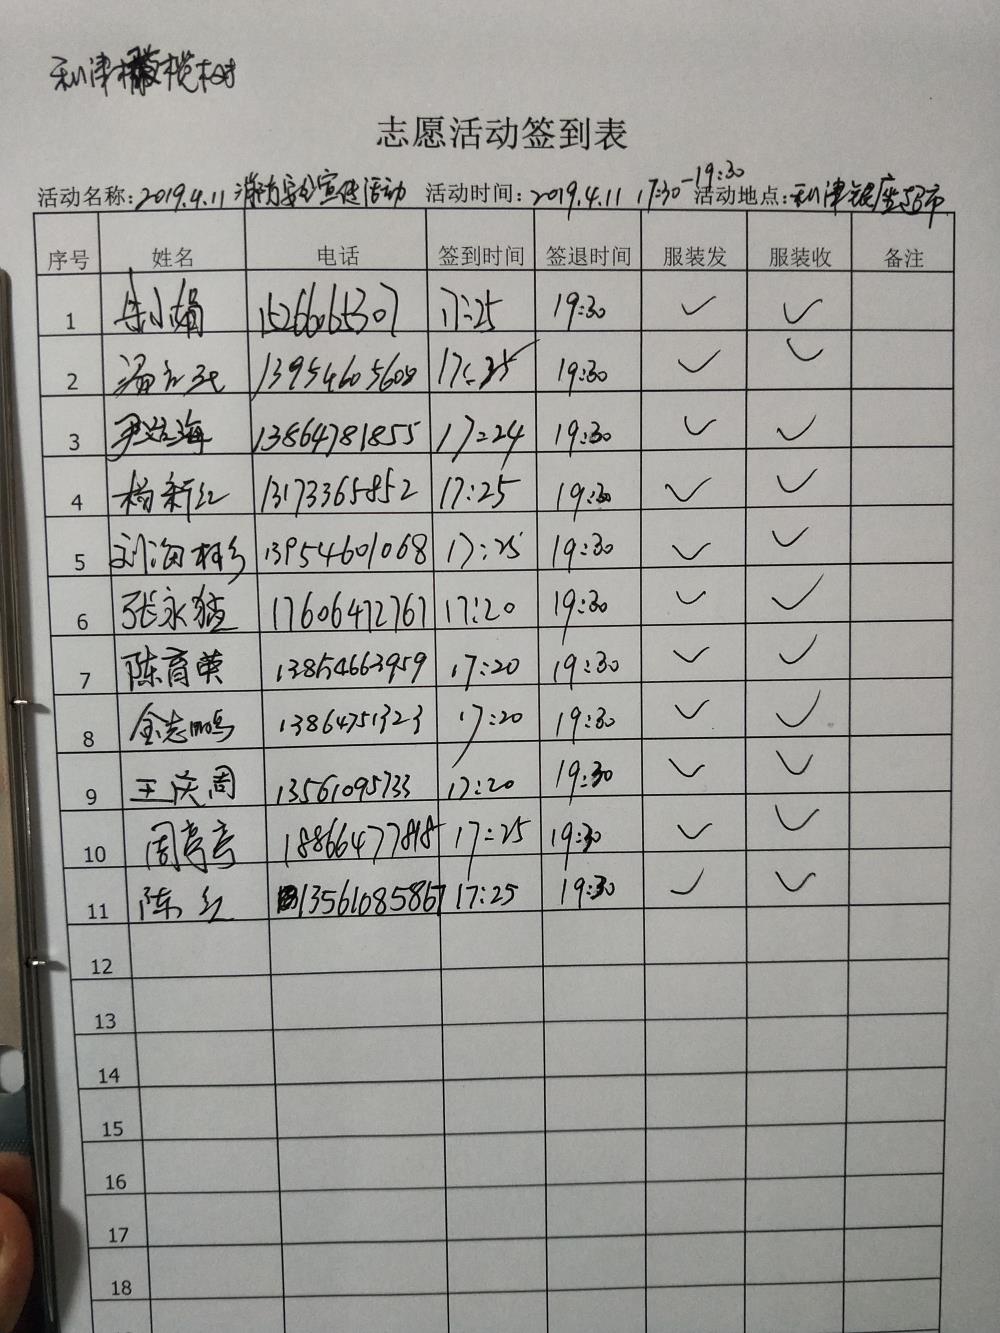 利津橄榄树
志愿活动签到表
活动名称:2019.4.11消防安全宣传活动 活动时间:2019.4.11 17:30-19:30 活动地点:利津银座超市
序号 姓名 电话 签到时间 签退时间 服装发 服装收 备注
1 岳小娟 15266065307 17:25 19:30 ✓ ✓
2 13954605608 17:25 19:30 ✓ ✓
3 尹海 13864781855 17:24 19:30 ✓ ✓
4 杨新红 13173365852 17:25 19:30 ✓ ✓
5 刘海 13954601068 17:25 19:30 ✓ ✓
6 张永猛 17606472767 17:20 19:30 ✓ ✓
7 陈育荣 13854663959 17:20 19:30 ✓ ✓
8 金志鹏 13864751323 17:20 19:30 ✓ ✓
9 王庆周 13561095733 17:20 19:30 ✓ ✓
10 周亭亭 17:25 19:30 ✓ ✓
11 陈红 13561085867 17:25 19:30 ✓ ✓
12
13
14
15
16
17
18